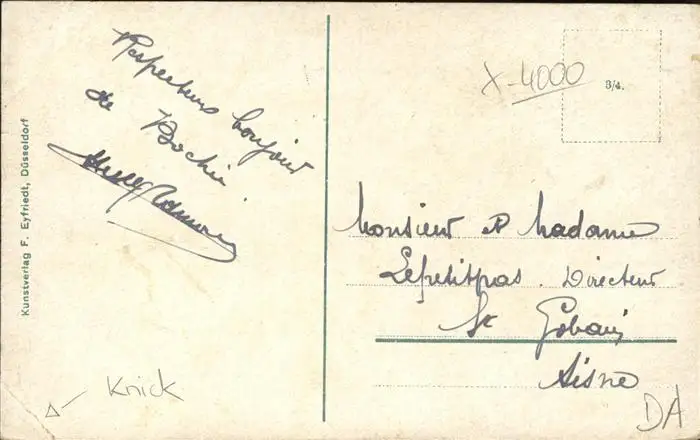 Respectueux bonjour
de Bochie
Monsieur et Madame
Lepetitpas. Directeur
St Gobain
Aisne
X-4000
3/4.
Kunstverlag F. Eyfriedt, Düsseldorf
Knick
DA